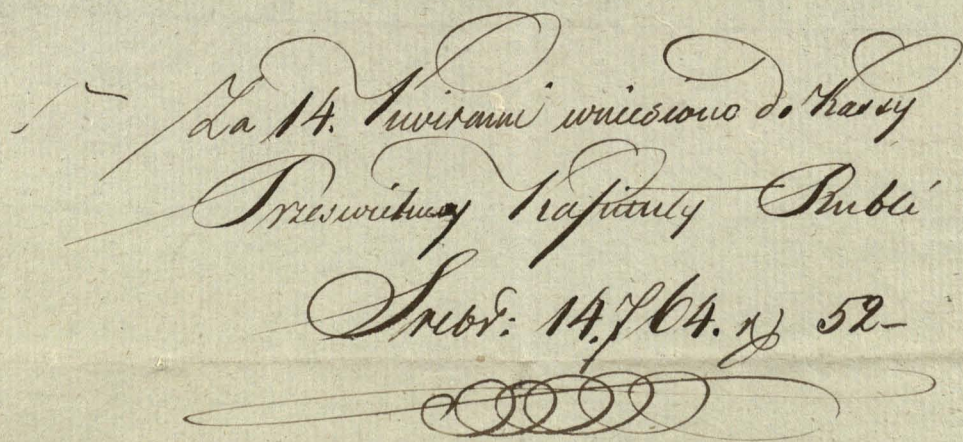 Za 14. Kwitami wniesiono do Kassy
Prześwietney Kapituły Rubli
Srebr: 14,764. 52-